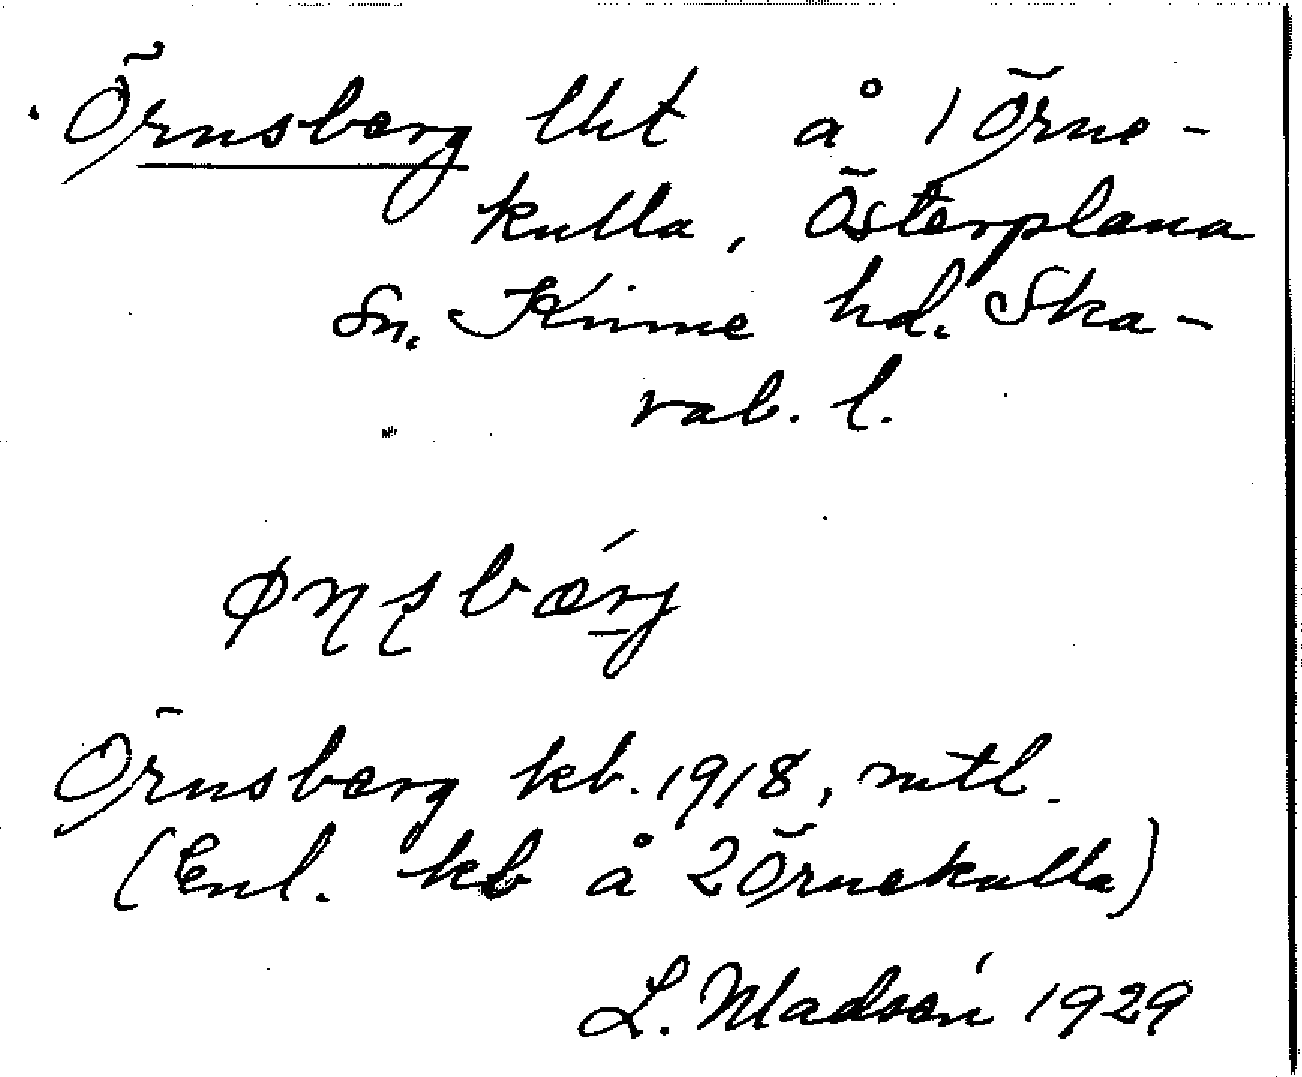 Örnsberg lht å 1 Örne-
kulla, Österplana
sn. Kinne hd. Ska-
rab. l.
Örnsberg kb. 1918, mtl.
(Enl. kb å 2 Örnekulla)
L. Madsén 1929